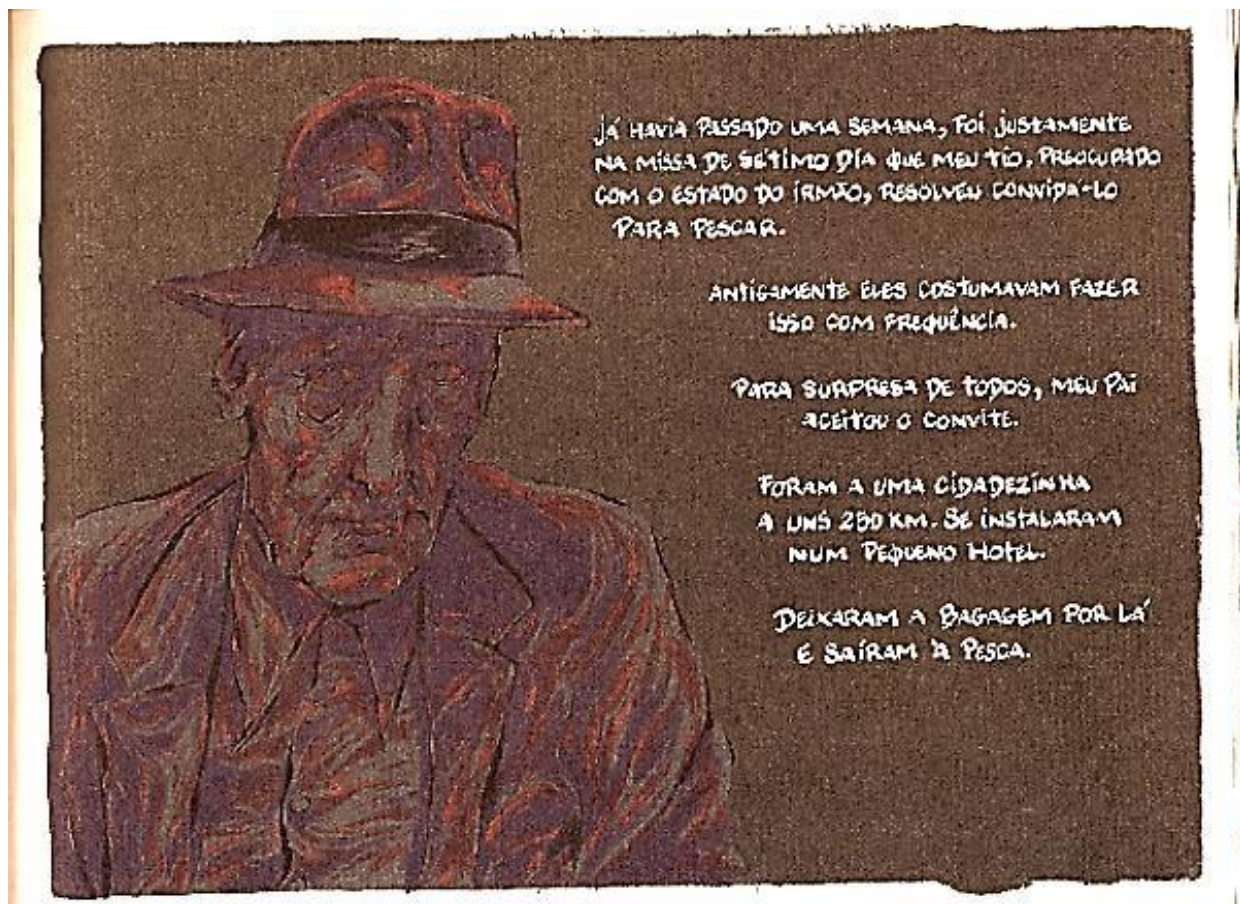 JÁ HAVIA PASSADO UMA SEMANA, FOI JUSTAMENTE
NA MISSA DE SÉTIMO DIA QUE MEU TIO, PREOCUPADO
COM O ESTADO DO IRMÃO, RESOLVEU CONVIDÁ-LO
PARA PESCAR.
ANTIGAMENTE ELES COSTUMAVAM FAZER
ISSO COM FREQUÊNCIA.
PARA SURPRESA DE TODOS, MEU PAI
ACEITOU O CONVITE.
FORAM A UMA CIDADEZINHA
A UNS 250 KM. SE INSTALARAM
NUM PEQUENO HOTEL.
DEIXARAM A BAGAGEM POR LÁ
E SAÍRAM À PESCA.